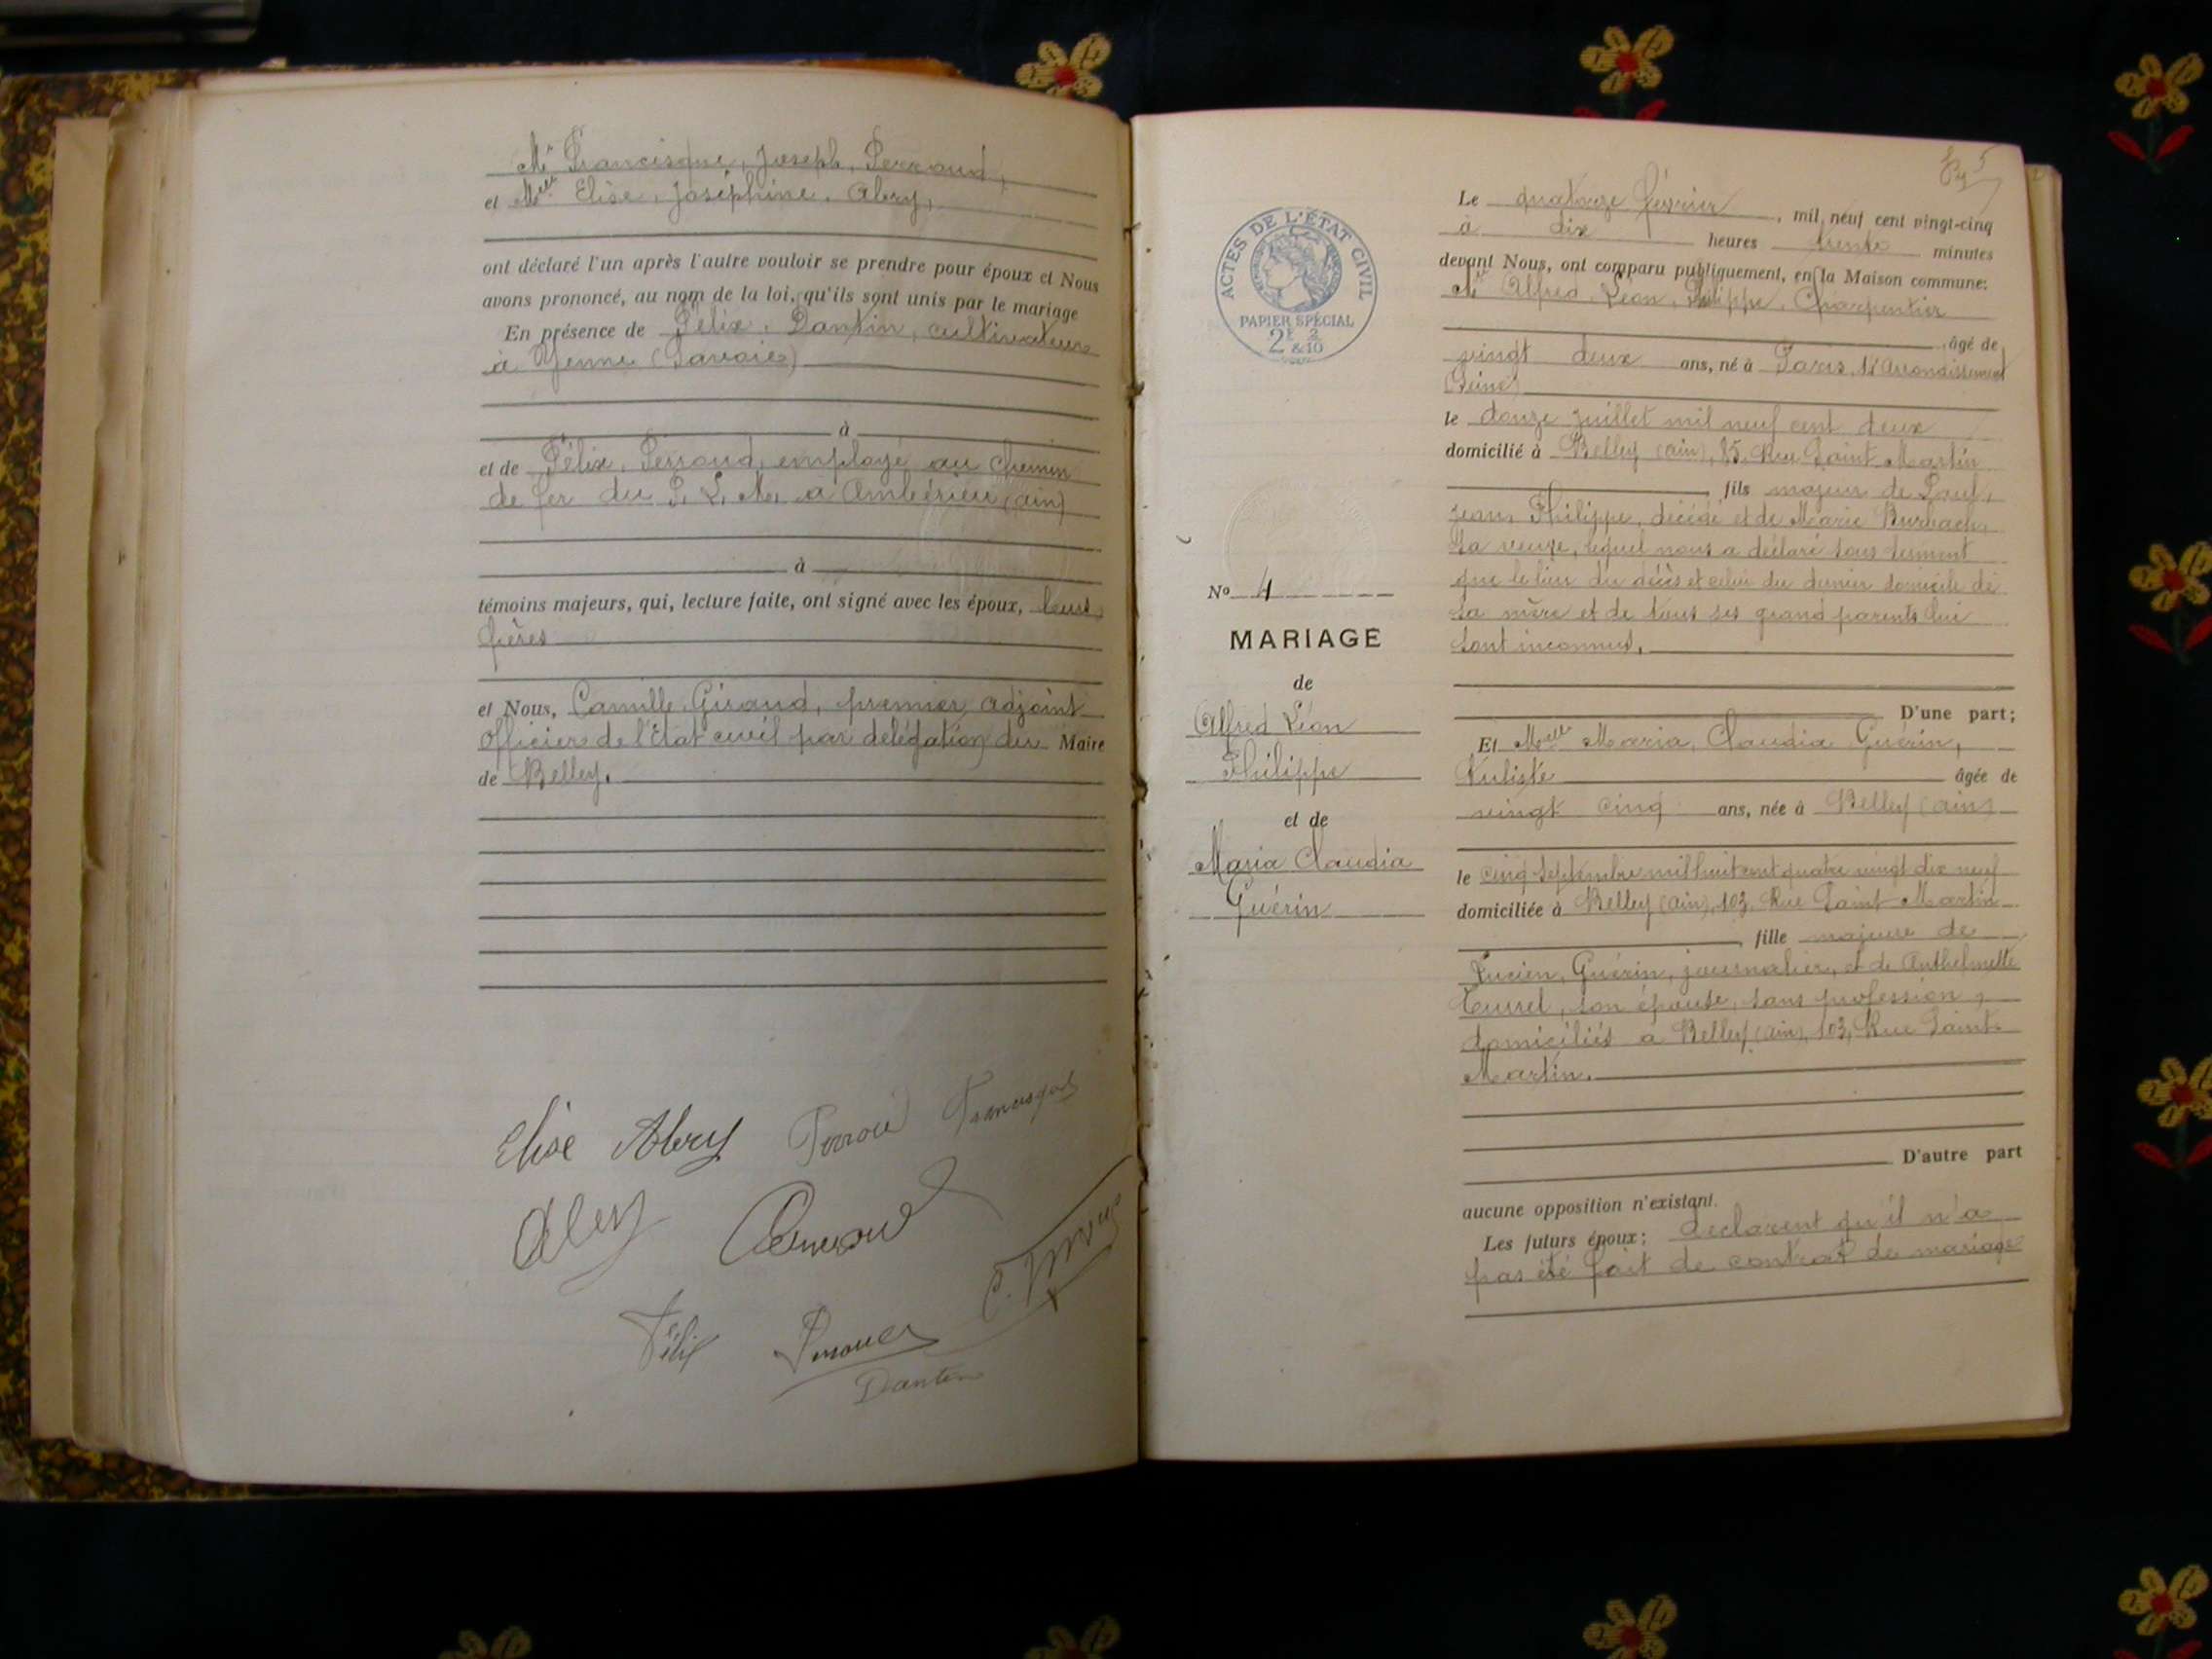 Mr Francisque, Joseph, Perroud,
et Melle Elise, Joséphine, Abry,
ont déclaré l'un après l'autre vouloir se prendre pour époux et Nous
avons prononcé, au nom de la loi, qu'ils sont unis par le mariage
En présence de Félix, Dantin, cultivateur
à Yenne (Savoie)
à
et de Félix, Perroud, employé au chemin
de fer du P. L. M. à Ambérieu (Ain)
à
témoins majeurs, qui, lecture faite, ont signé avec les époux, leurs
pères
et Nous, Camille Giraud, premier adjoint
Officier de l'Etat civil par délégation du Maire
de Belley.
Elise Abry Perroud Francisque
Abry
Félix
Dantin
5
Le quatorze février, mil neuf cent vingt-cinq
à dix heures trente minutes
devant Nous, ont comparu publiquement, en la Maison commune:
Mr Alfred, Léon, Philippe, Charpentier
âgé de
vingt deux ans, né à Paris, Arrondissement
(Seine)
le douze juillet mil neuf cent deux
domicilié à Belley (Ain), 85, Rue Saint Martin
fils majeur de Paul,
Jean, Philippe, décédé et de Marie Burbach,
sa veuve, lequel nous a déclaré sous serment
que le lieu du décès et celui du dernier domicile de
sa mère et de tous ses grand parents lui
sont inconnus.
D'une part;
Et Melle Maria, Claudia Guérin,
Tulliste âgée de
vingt cinq ans, née à Belley (Ain)
le cinq septembre mil huit cent quatre vingt dix neuf
domiciliée à Belley (Ain), 103, Rue Saint Martin
fille majeure de
Lucien, Guérin, journalier, et de Anthelmette
son épouse, sans profession,
domiciliés à Belley (Ain), 103, Rue Saint
Martin.
D'autre part
aucune opposition n'existant.
Les futurs époux; déclarent qu'il n'a
pas été fait de contrat de mariage
ACTES DE L'ÉTAT CIVIL
PAPIER SPÉCIAL
2F & 2/10
No 4
MARIAGE
de
Alfred Léon
Philippe
et de
Maria Claudia
Guérin